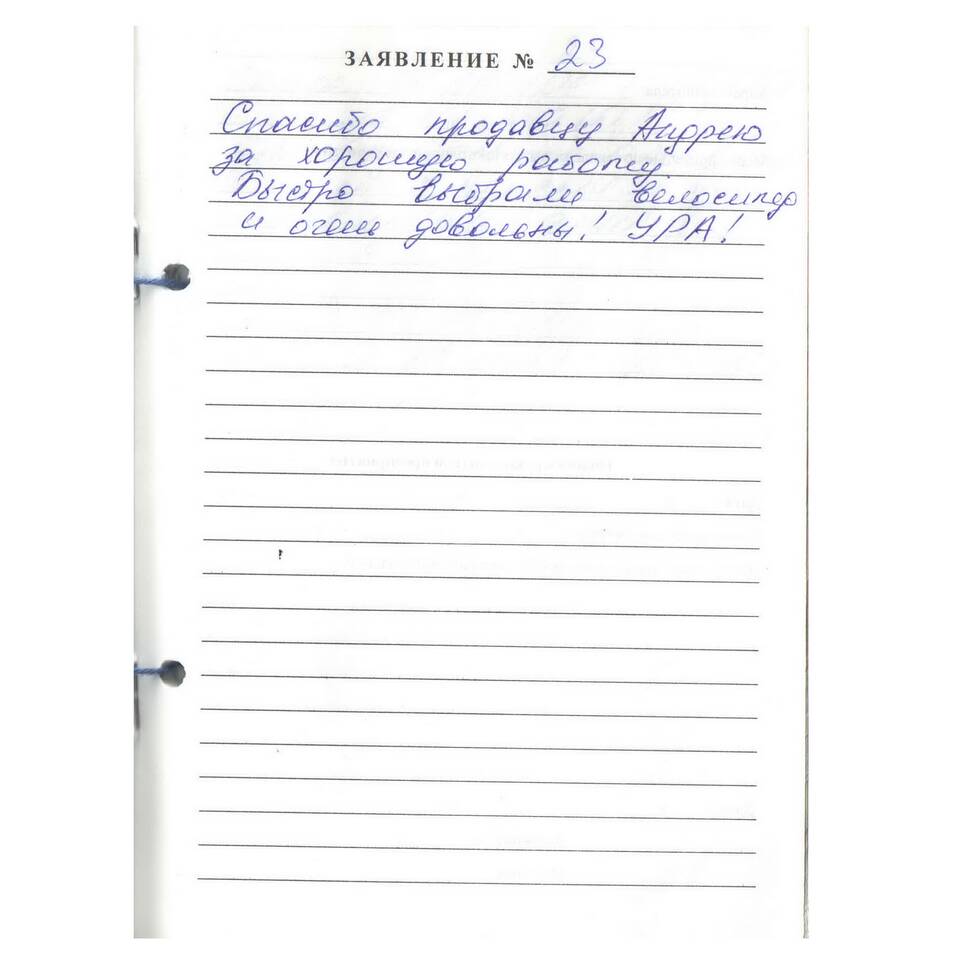 ЗАЯВЛЕНИЕ № 23
Спасибо продавцу Андрею
за хорошую работу.
Быстро выбрали велосипед
и очень довольны! УРА!